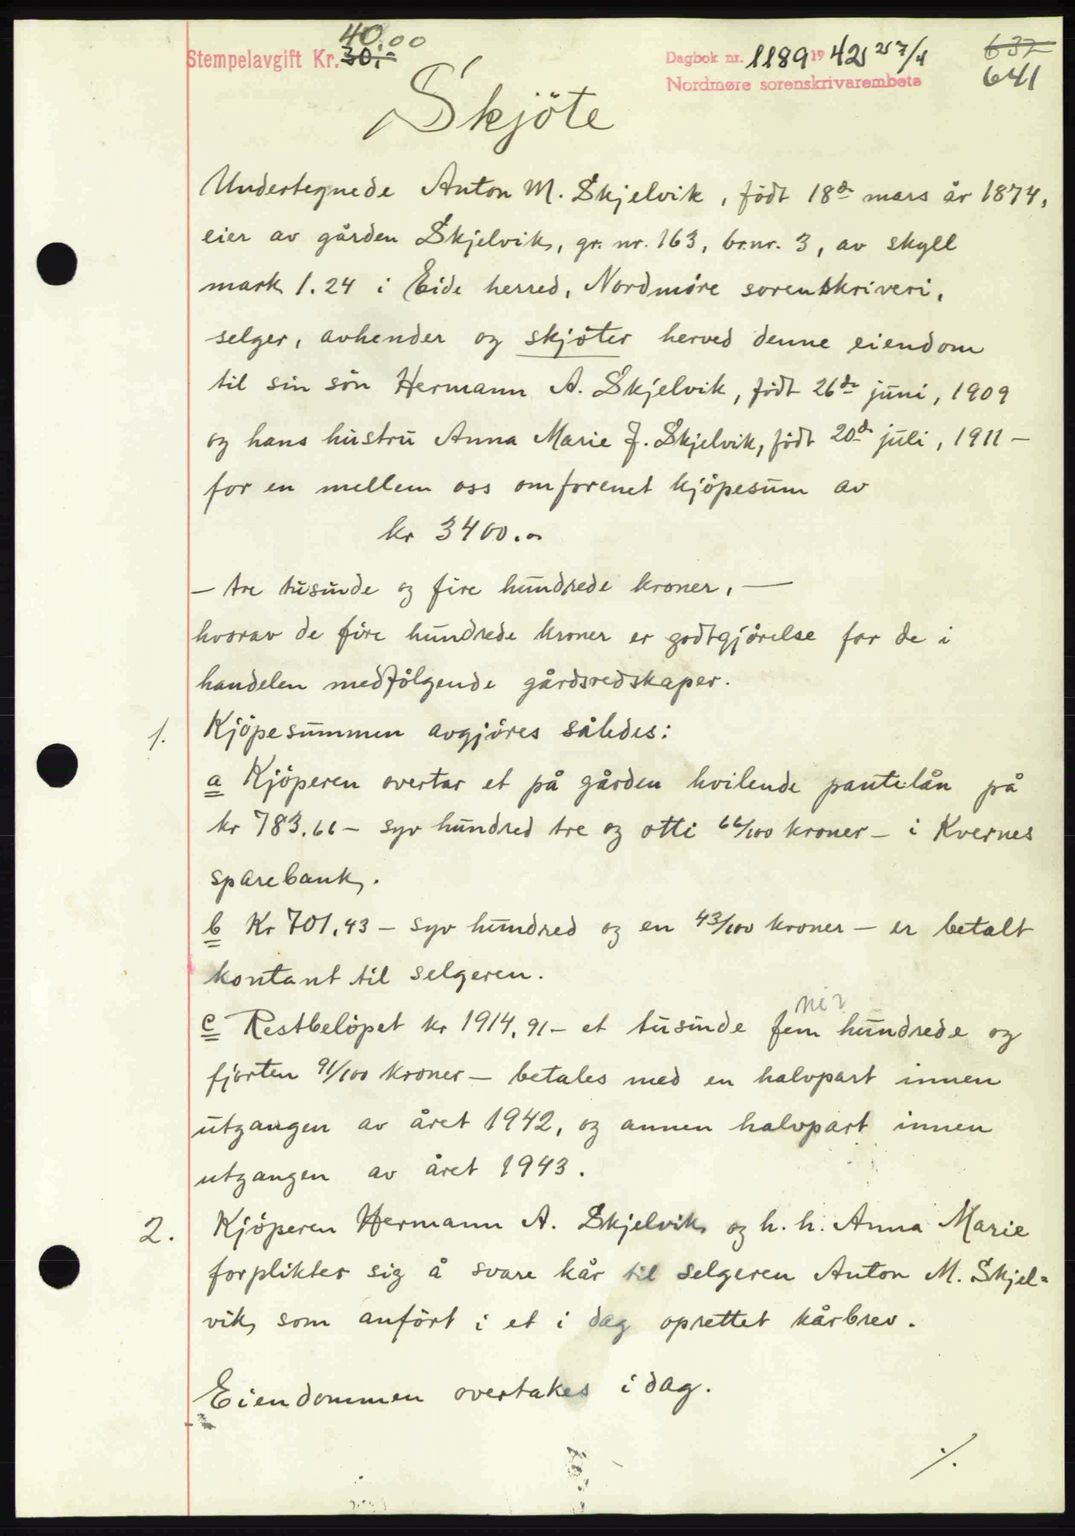 40.00
Stempelavgift Kr. 30,-
Dagbok nr. 1189 1942 25 7/4
Nordmøre sorenskrivarembete
637
641
Skjöte
Undertegnede Anton M. Skjelvik, födt 18de mars år 1874,
eier av gården Skjelvik, gr. nr. 163, br.nr. 3, av skyll
mark 1.24 i Eide herred, Nordmöre sorenskriveri,
selger, avhender og skjöter herved denne eiendom
til sin sön Hermann A. Skjelvik, födt 26de juni, 1909
og hans hustru Anna Marie J. Skjelvik, födt 20de juli, 1911 –
for en mellem oss omforenet kjöpesum av
kr 3400.00
– tre tusunde og fire hundrede kroner, –
hvorav de fire hundrede kroner er godtgjörelse for de i
handelen medfölgende gårdsredskaper.
1. Kjöpesummen avgjöres således:
a Kjöperen overtar et på gården hvilende pantelån på
kr 783.66 – syv hundred tre og otti 66/100 kroner – i Kvernes
sparebank.
b Kr 701,43 – syv hundred og en 43/100 kroner – er betalt
kontant til selgeren.
ni?
c Restbelöpet kr 1914,91 – et tusunde fem hundrede og
fjorten 91/100 kroner – betales med en halvpart innen
utgangen av året 1942, og annen halvpart innen
utgangen av året 1943.
2. Kjöperen Hermann A. Skjelvik og h. h. Anna Marie
forplikter sig å svare kår til selgeren Anton M. Skjel=
vik, som anfört i et i dag oprettet kårbrev.
Eiendommen overtakes i dag.
./.